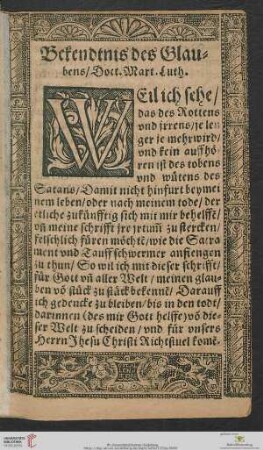 Bekendtnis des Glau-
bens/ Doct. Mart. Luth.
WEil ich sehe/
das des Rottens
vnd jrrens/ je len
ger je mehr wird/
vnd kein auffhö-
ren ist des tobens
vnd wütens des
Satans/ Damit nicht hinfurt bey mei
nem leben/ oder nach meinem tode/ der
etliche zukünfftig sich mit mir behelffē/
vñ meine schrifft jre jrtum̄ zu stercken/
felschlich füren möchtē/ wie die Sacra
ment vnd Tauff schwermer anfiengen
zu thun/ So wil ich mit dieser schrifft/
für Gott vñ aller Welt/ meinen glau-
ben vō stück zu stück bekennē/ Darauff
ich gedencke zu bleiben/ bis in den tod/
darinnen (des mir Gott helffe) vō die-
ser Welt zu scheiden/ vnd für vnsers
Herrn Jhesu Christi Richtstuel komē.